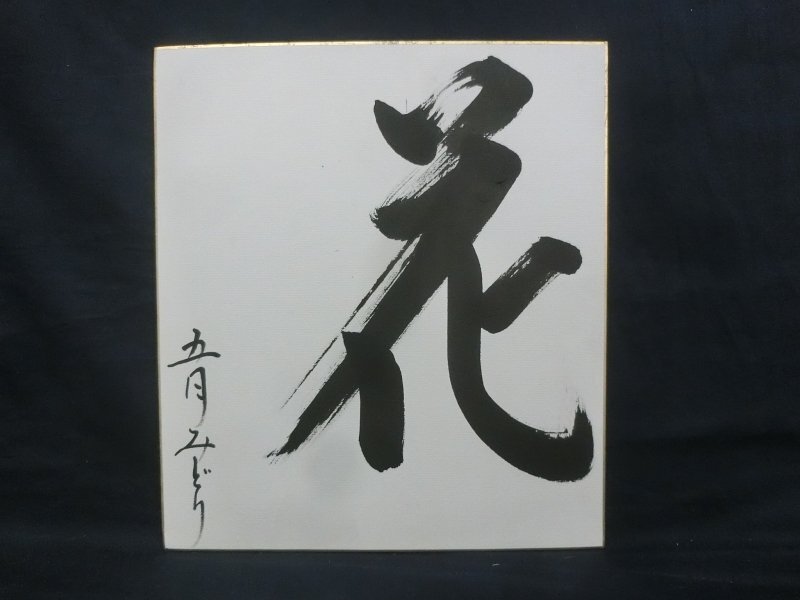 花
五月みどり